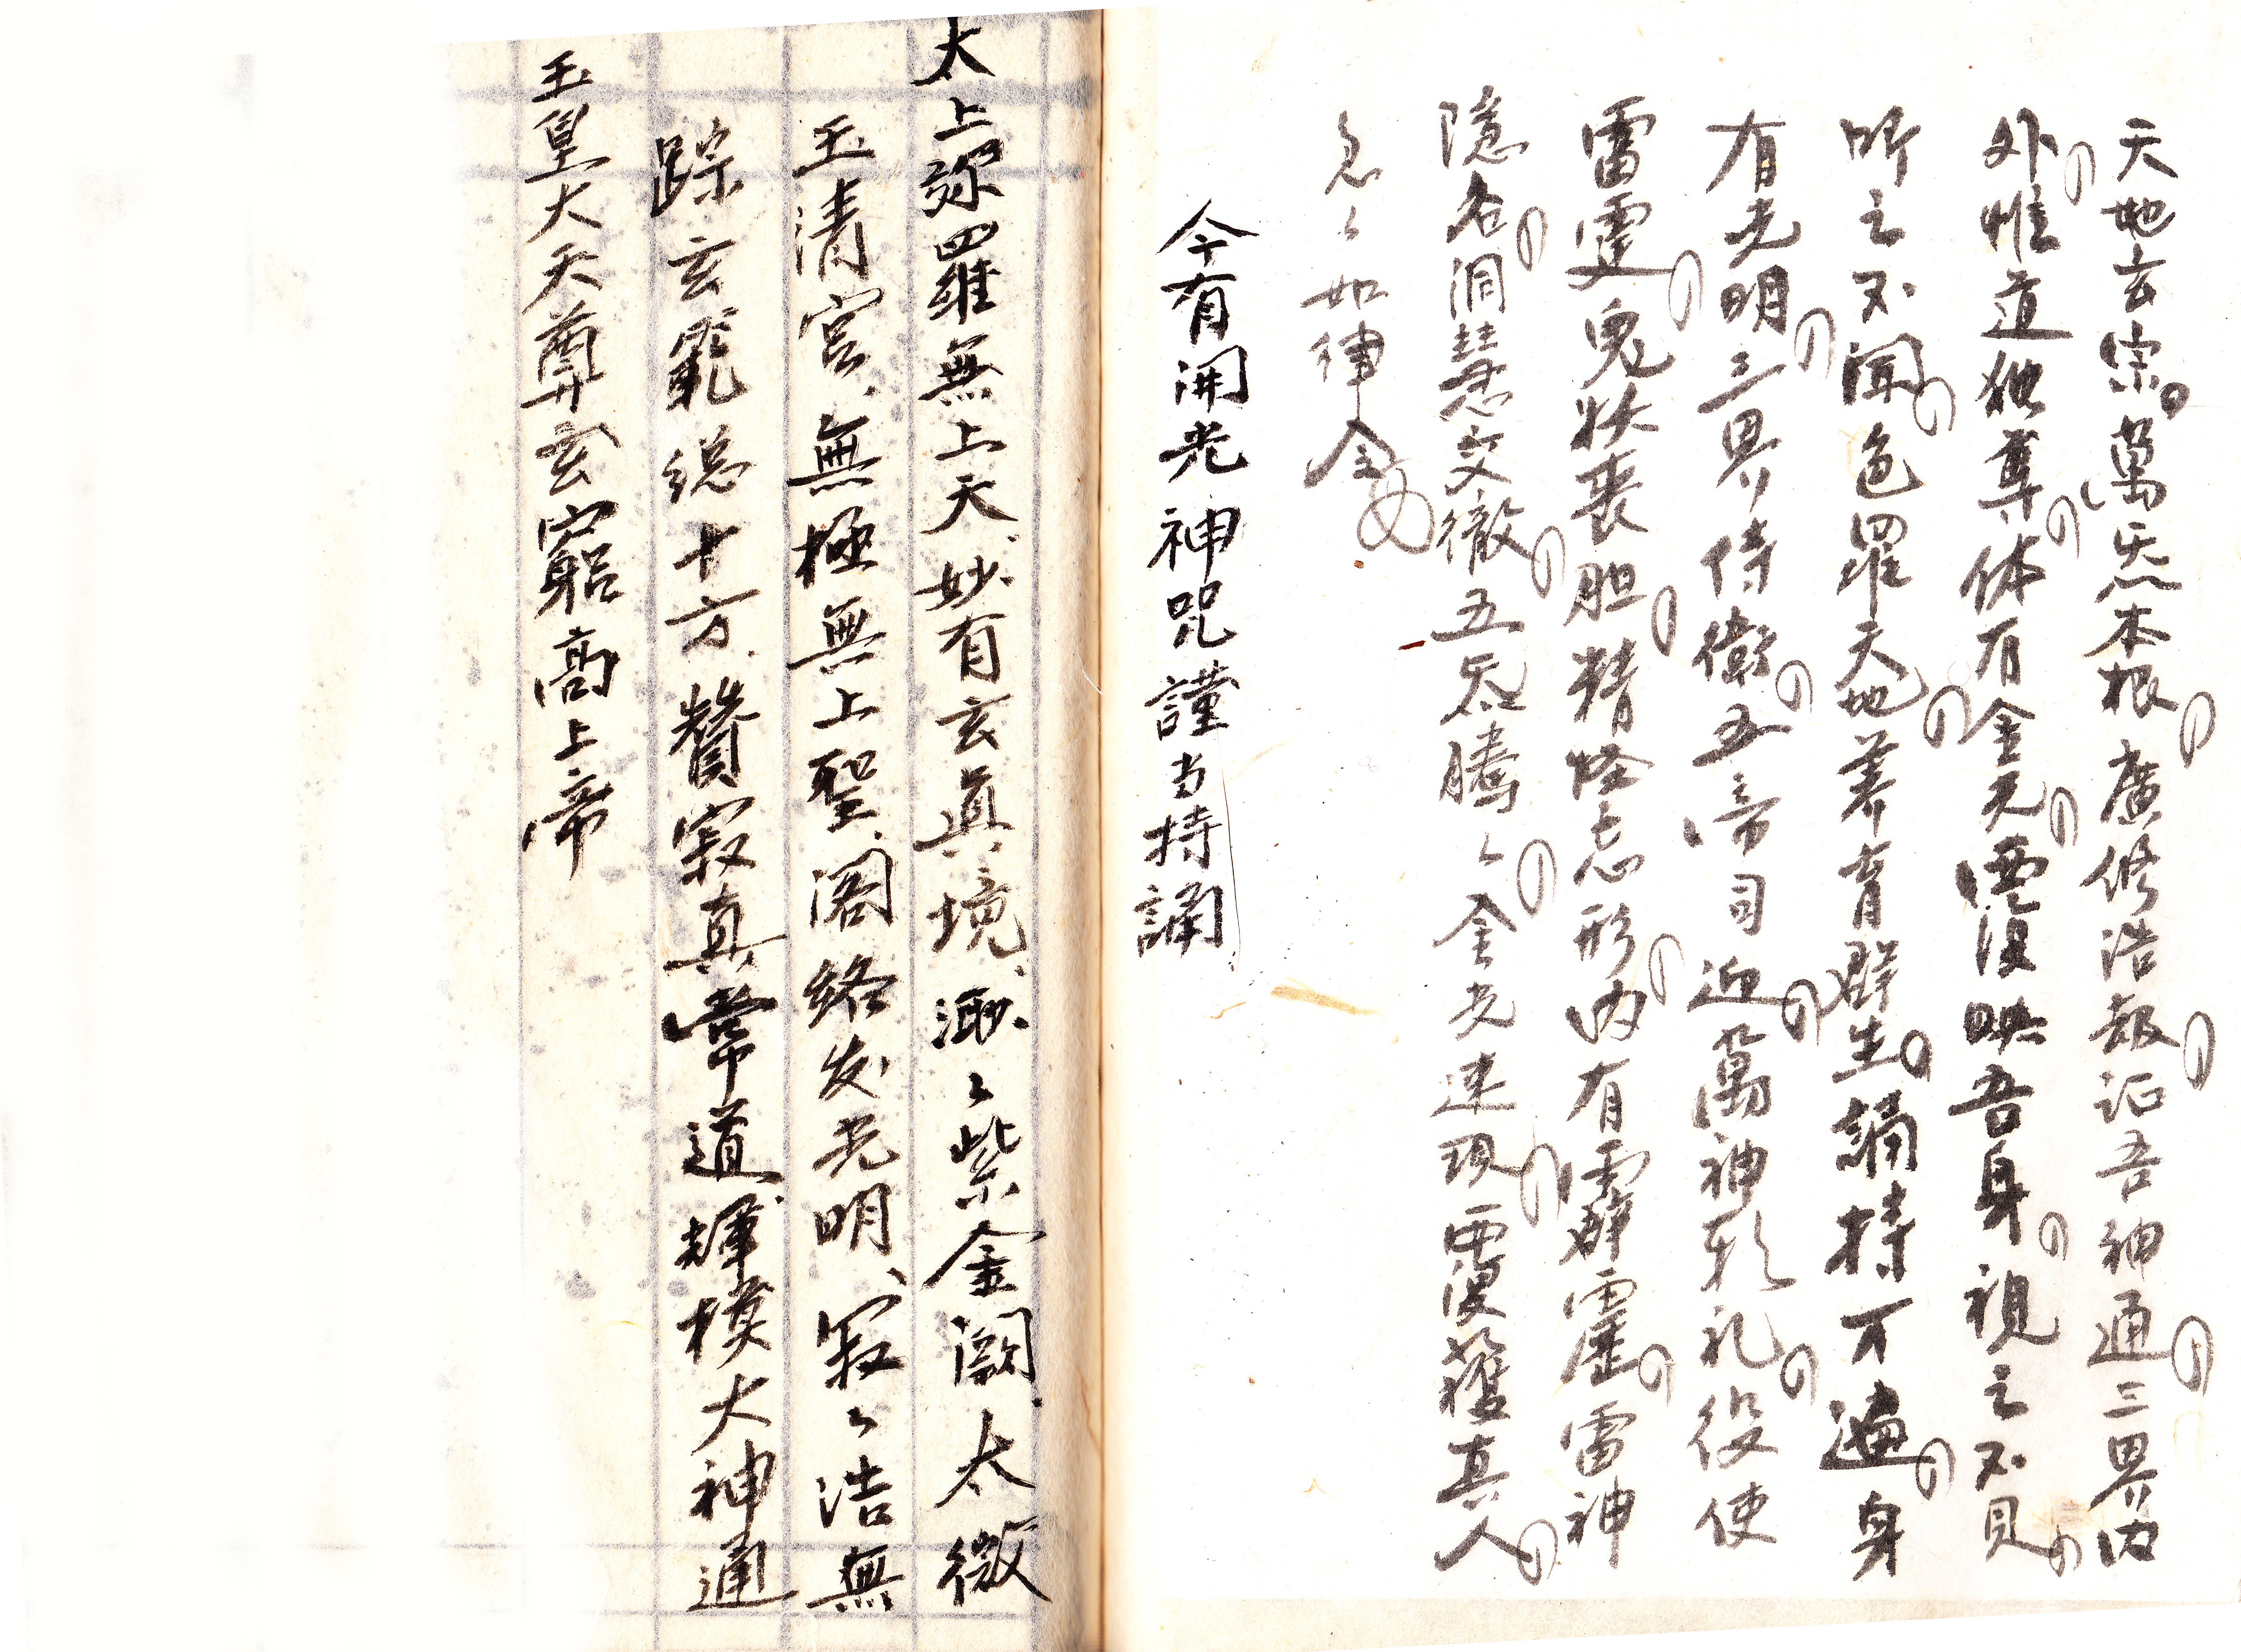 天地玄宗。萬炁本根廣修浩劫証吾神通三界内
外惟道独尊体有金光覆映吾身視之不見
听之不聞色羅天地养育群生誦持万遍身
有光明三界侍衛五帝司迎萬神朝礼役使
雷霆鬼妖丧胆精怪忘形内有霹靂雷神
隱名洞慧交徹五炁腾〻金光速現覆護真人
急〻如律令
今有開光神咒謹当持誦
太上弥羅無上天、妙有玄真境、渺〻紫金闕、太微
玉清宮、無極無上聖、阁络发光明、寂〻浩無
踪玄範总十方、贊寂真常道輝模大神通
玉皇大天尊玄窮高上帝